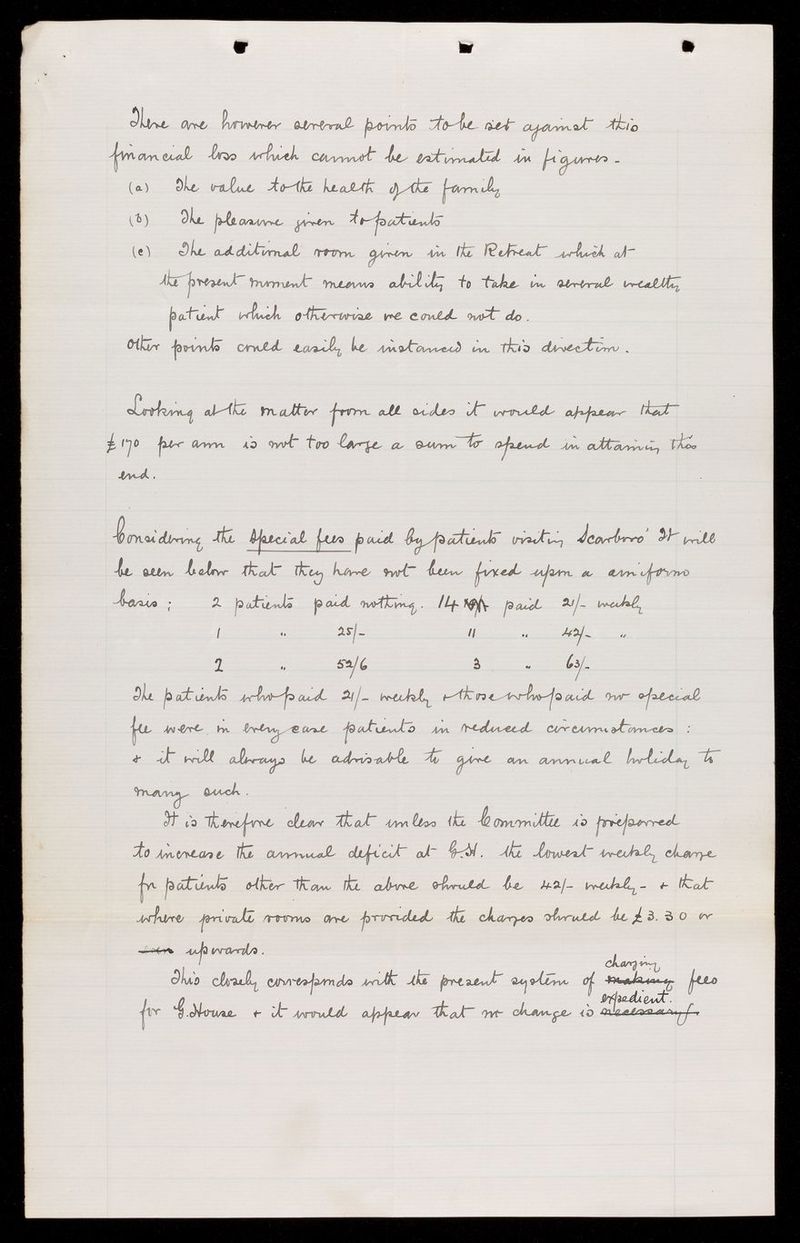 There are however several points to be set against this
financial loss which cannot be estimated in figures -
(a) The value to the health of the family
(b) The pleasure given to patients
(c) The additional room given in the Retreat which at
the present moment means ability to take in several wealthy
patient which otherwise we could not do.
Other points could easily be instanced in this direction.
Looking at the matter from all sides it would appear that
£170 per ann is not too large a sum to spend in attaining this
end.
Considering the special fees paid by patients visiting Scarboro' It will
be seen below that they have not been fixed upon a uniform
basis; 2 patients paid nothing. 14 paid 21/- weekly
1 " 25/- 11 " 42/- "
2 " 52/6 3 " 63/-
The patients who paid 21/- weekly & those who paid no special
fee were in every case patients in reduced circumstances :
& it will always be advisable to give an annual holiday to
many such.
It is therefore clear that unless the Committee is preparred
to increase the annual deficit at G.H. the lowest weekly charge
for patients other than the above should be 42/- weekly - & that
where private rooms are provided the charges should be £3. 3 0 or
upwards.
charging
This closely corresponds with the present system of making fees
expedient.
for G. House & it would appear that no change is necessary.